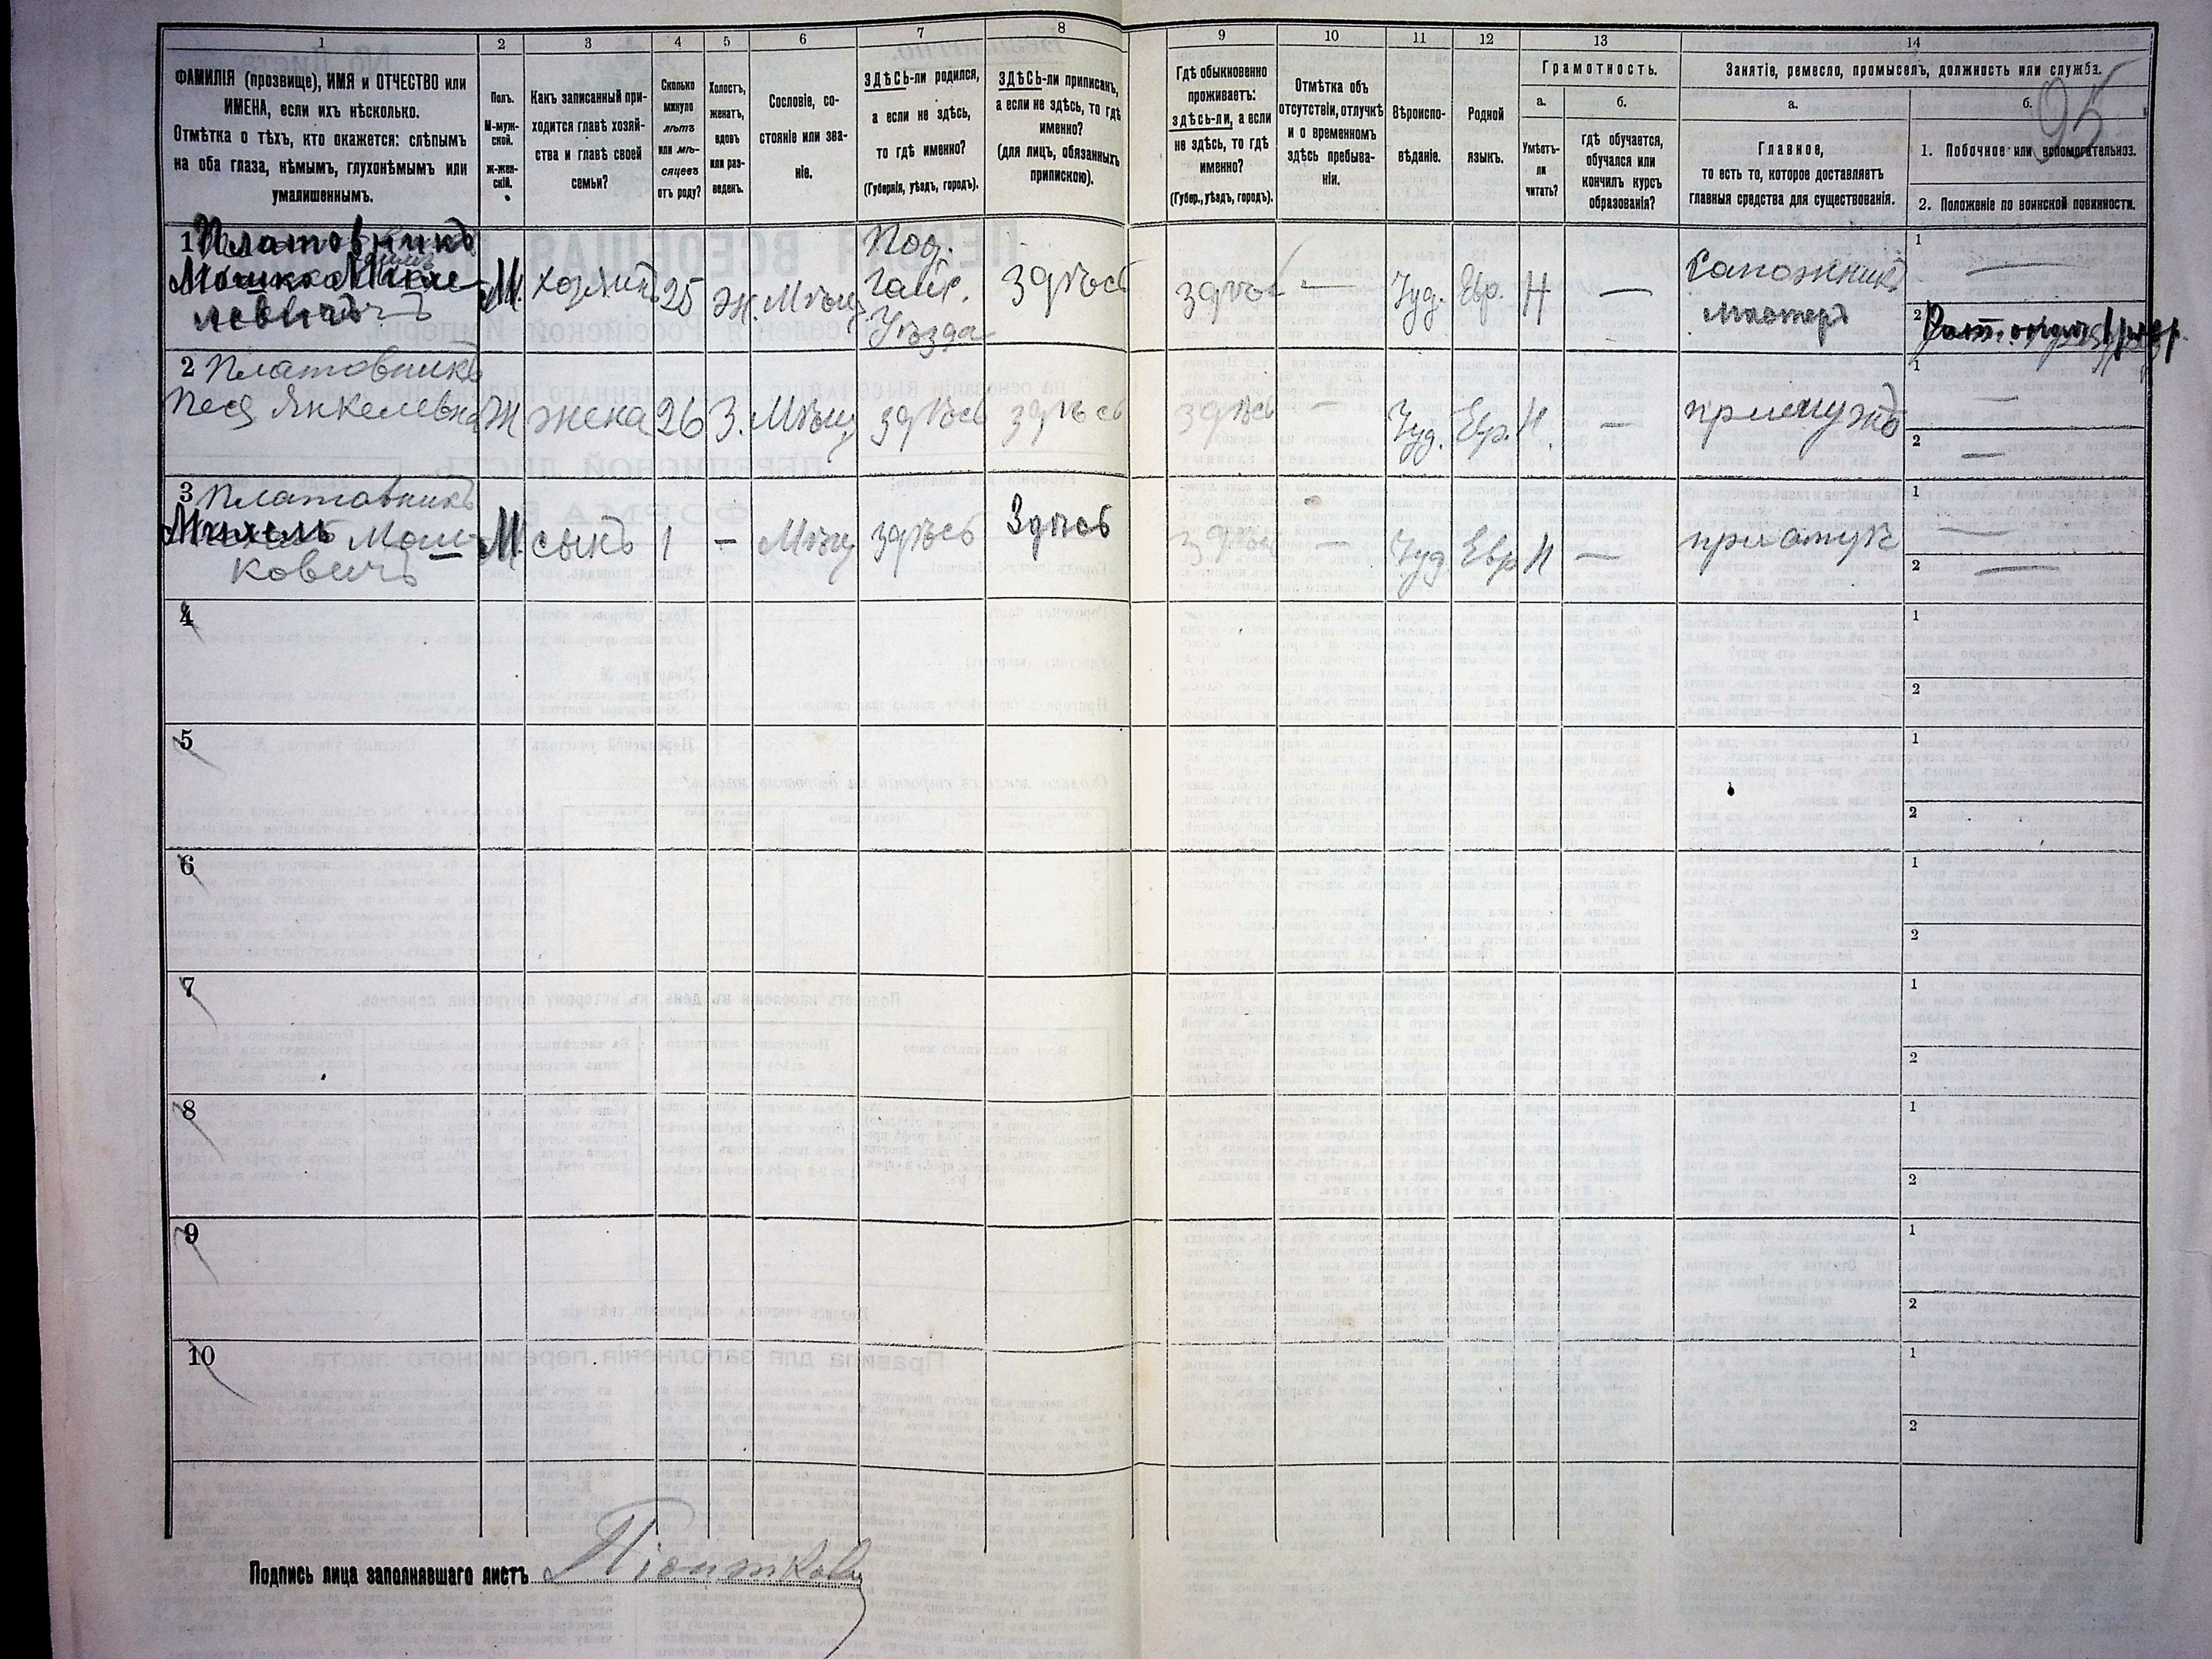 95
1
2
3
4
5
6
7
8
9
10
11
12
13
14
ФАМИЛІЯ (прозвище), ИМЯ и ОТЧЕСТВО или
ИМЕНА, если ихъ нѣсколько.
Отмѣтка о тѣхъ, кто окажется: слѣпымъ
на оба глаза, нѣмымъ, глухонѣмымъ или
умалишеннымъ.
Полъ.
М-муж-
ской.
ж-жен-
скій.
Какъ записанный при-
ходится главѣ хозяй-
ства и главѣ своей
семьи?
Сколько
минуло
лѣтъ
или мѣ-
сяцевъ
отъ роду?
Холостъ,
женатъ,
вдовъ
или раз-
веденъ.
Сословіе, со-
стояніе или зва-
ніе.
ЗДѢСЬ-ли родился,
а если не здѣсь,
то гдѣ именно?
(Губернія, уѣздъ, городъ).
ЗДѢСЬ-ли приписанъ,
а если не здѣсь, то гдѣ
именно?
(для лицъ, обязанныхъ
припискою).
Гдѣ обыкновенно
проживаетъ:
здѣсь-ли, а если
не здѣсь, то гдѣ
именно?
(Губер., уѣздъ, городъ).
Отмѣтка объ
отсутствіи, отлучкѣ
и о временномъ
здѣсь пребыва-
ніи.
Вѣроиспо-
вѣданіе.
Родной
языкъ.
Грамотность.
а.
Умѣетъ-
ли
читать?
б.
гдѣ обучается,
обучался или
кончилъ курсъ
образованія?
Занятіе, ремесло, промыселъ, должность или служба.
а.
Главное,
то есть то, которое доставляетъ
главныя средства для существованія.
б.
1. Побочное или вспомогательное.
2. Положеніе по воинской повинности.
1 Платовникъ
Мошко
левичъ
М. хозяинъ 25 ж Мѣщ
Под.
Гайс.
Уѣзда
здѣсь здѣсь — Іуд. Евр. Н —
Сапожникъ
мастеръ
1 —
2
2 Платовникъ
Песя Янкелевна Ж жена 26 З. Мѣщ здѣсь здѣсь здѣсь — Іуд. Евр. Н — при мужѣ
1 —
2 —
3 Платовникъ
Михель Мош-
ковичъ
М. сынъ 1 — Мѣщ здѣсь Здѣсь здѣсь — Іуд Евр Н — при отцѣ
1 —
2 —
4
1
2
5
1
2
6
1
2
7
1
2
8
1
2
9
1
2
10
1
2
Подпись лица заполнявшаго листъ